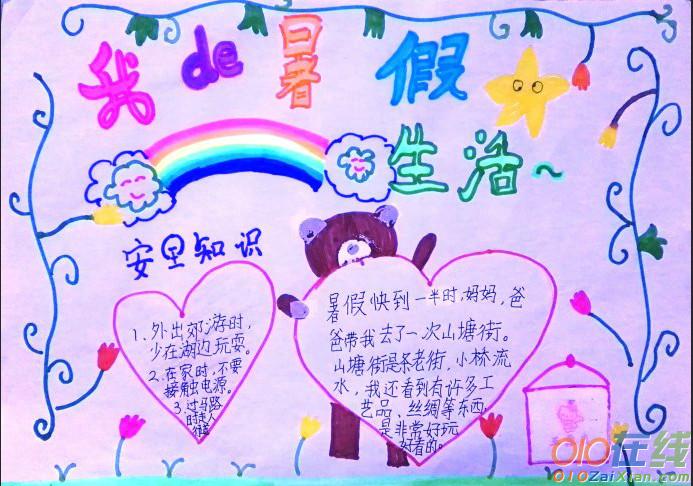 我de暑假
生活~
安里知识
1、外出郊游时,
少在湖边玩耍。
2、在家时,不要
接触电源。
3、过马路
时走人
暑假快到一半时,妈妈,爸
爸带我去了一次山塘街。
山塘街是条老街,小桥流
水,我还看到有许多工
艺品、丝绸等东西,
是非常好玩
好看的。
010在线
010ZaiXian.com